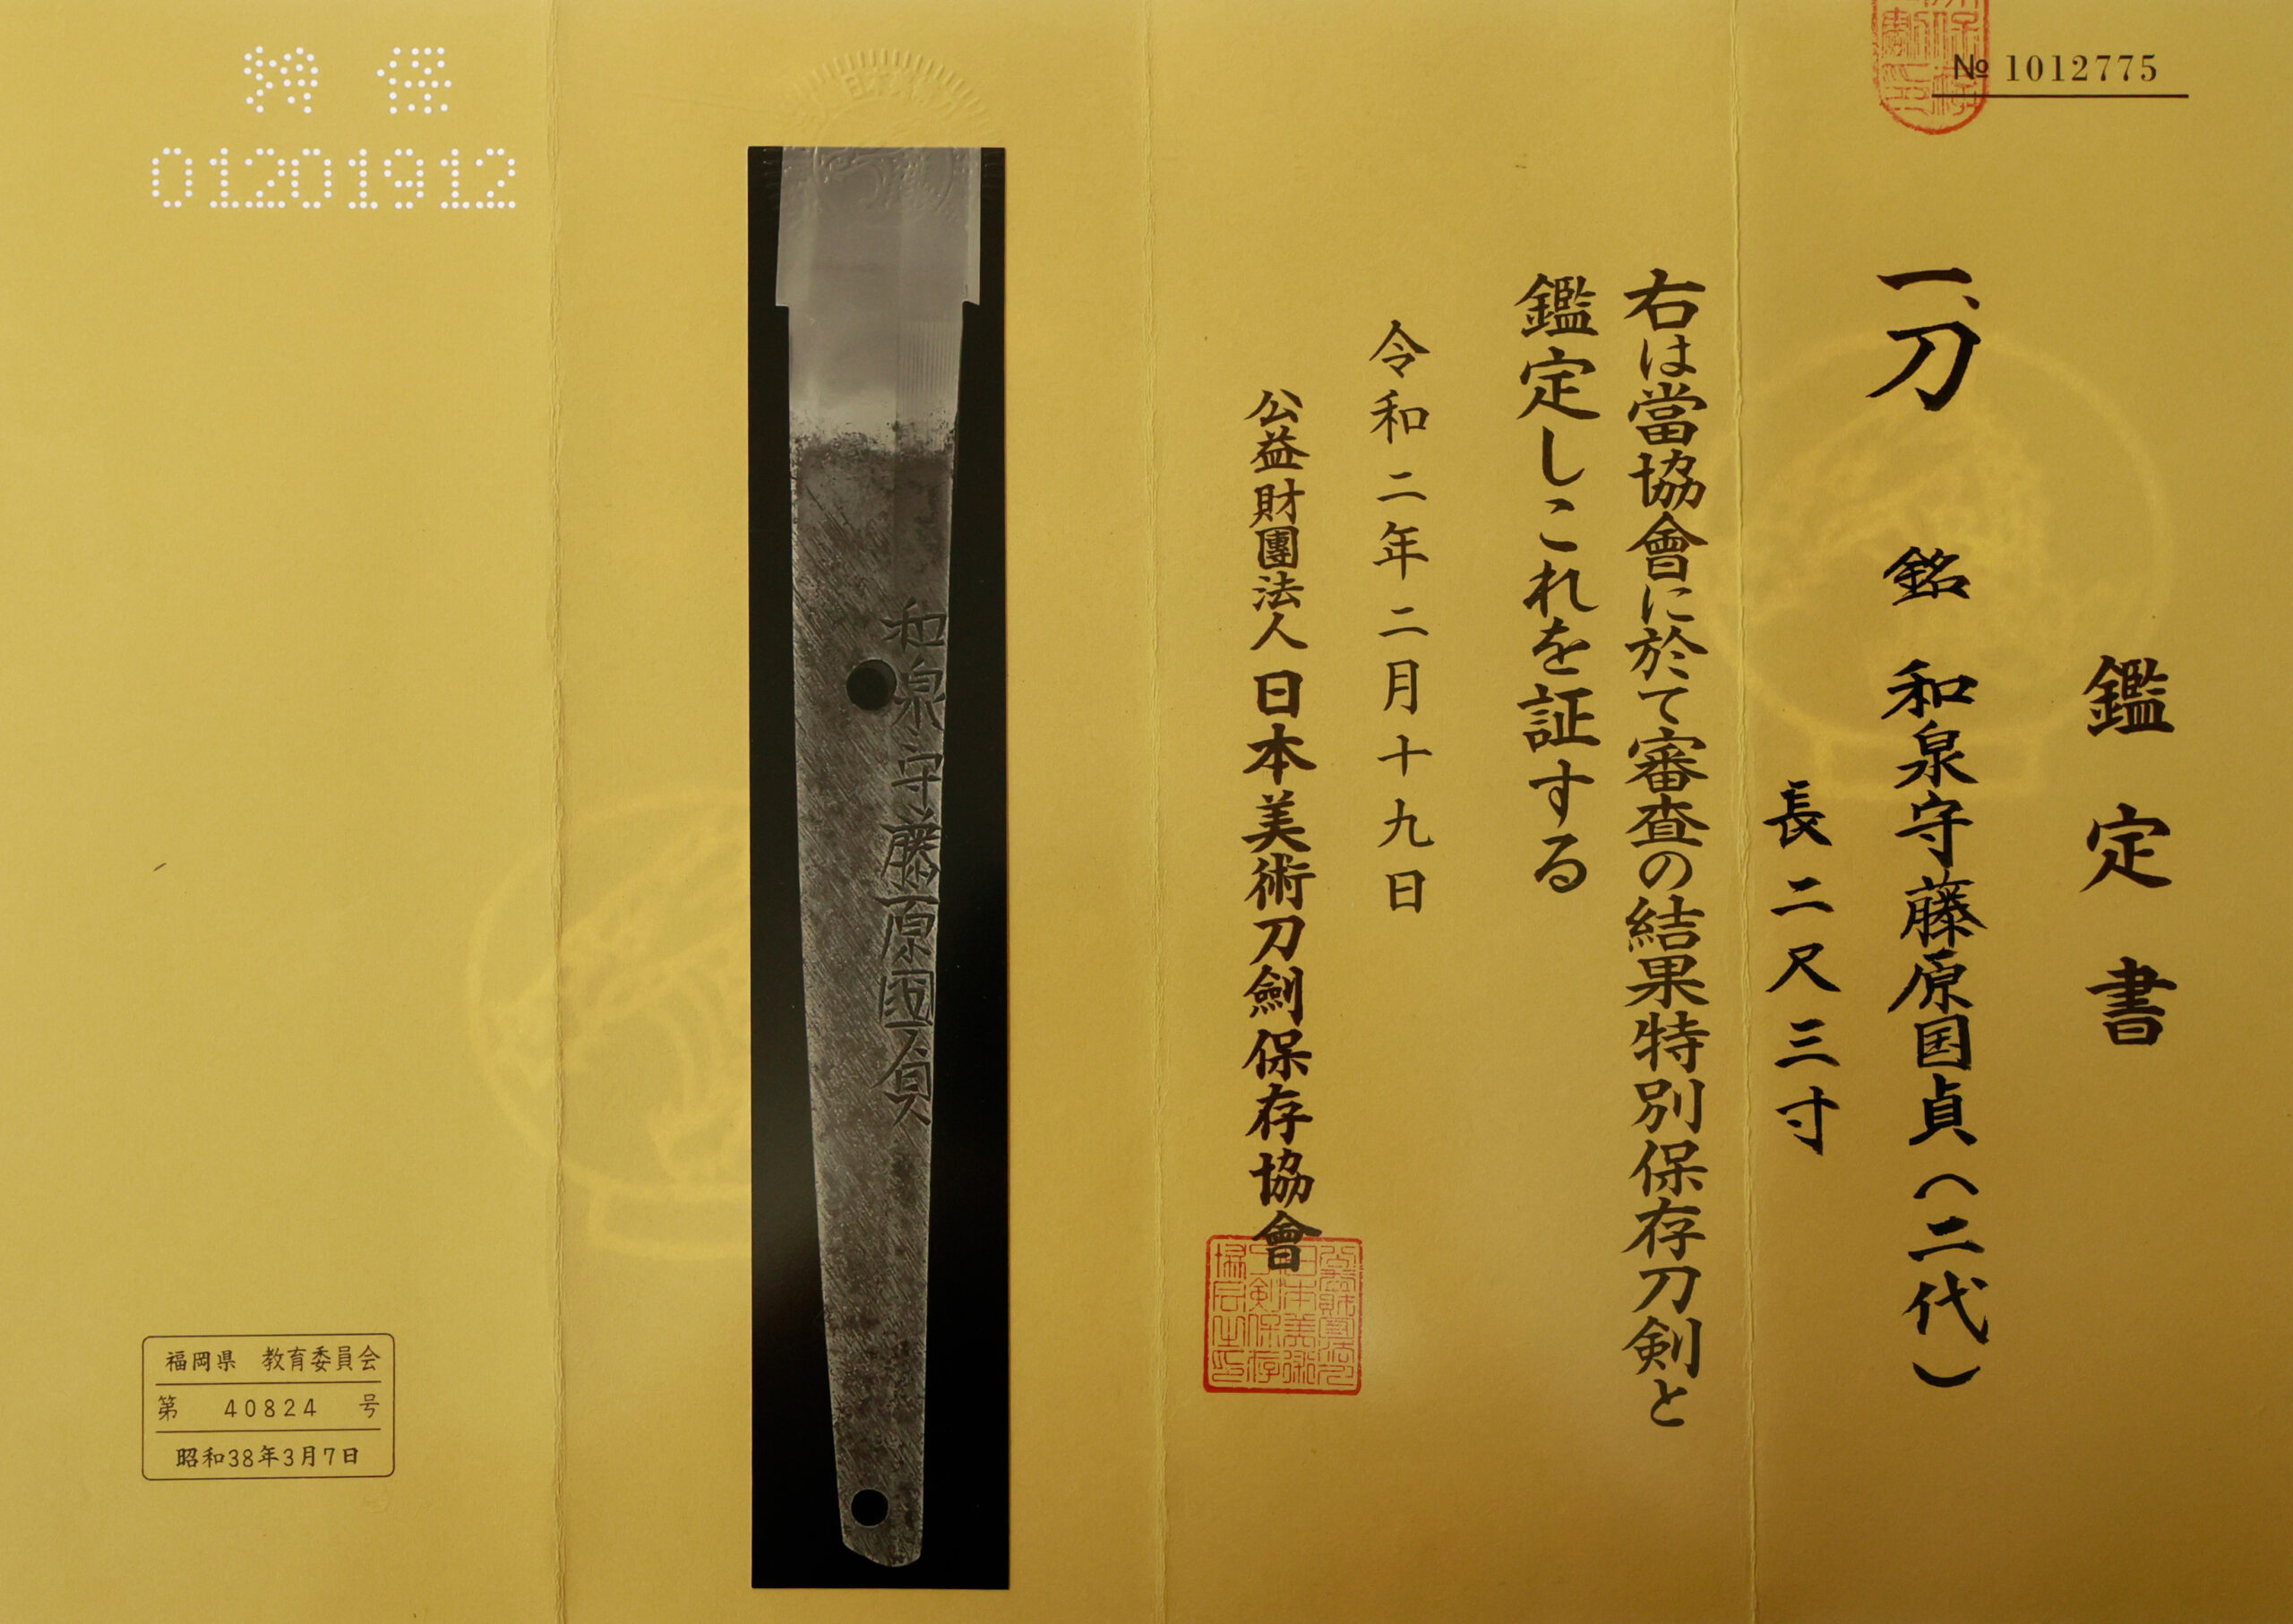 № 1012775
鑑定書
一、刀 銘 和泉守藤原国貞(二代)
長二尺三寸
右は當協會に於て審査の結果特別保存刀剣と
鑑定しこれを証する
令和二年二月十九日
公益財團法人 日本美術刀劍保存協會
和泉守藤原國貞
特保
01201912
福岡県 教育委員会
第 40824 号
昭和38年3月7日